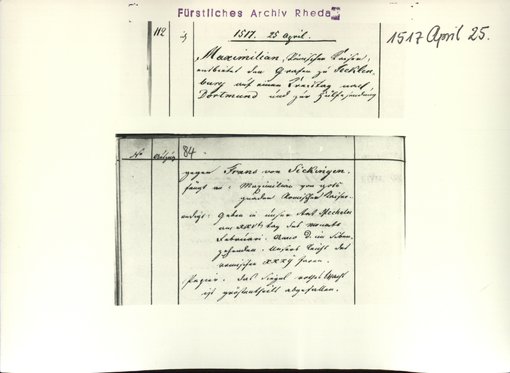 Fürstliches Archiv Rheda
1517 April 25.
112
1517. 25 April.
Maximilian, Römischer Kaiser,
entbietet den Grafen zu Tecklen-
burg auf einen Kreistag nach
Dortmund und zur Hülfesendung
No
84
gegen Franz von Sickingen.
fangt an: Maximilian von gots
gnaden Romischer Kaiser.
endigt: Geben in unser Stat Mecheln
am XXV. tag des monats
Anno D. im Siben-
zehenden. Unsers Reichs des
romischen XXXII Jaren.
Papier. das Siegel
ist größtentheils abgefallen.